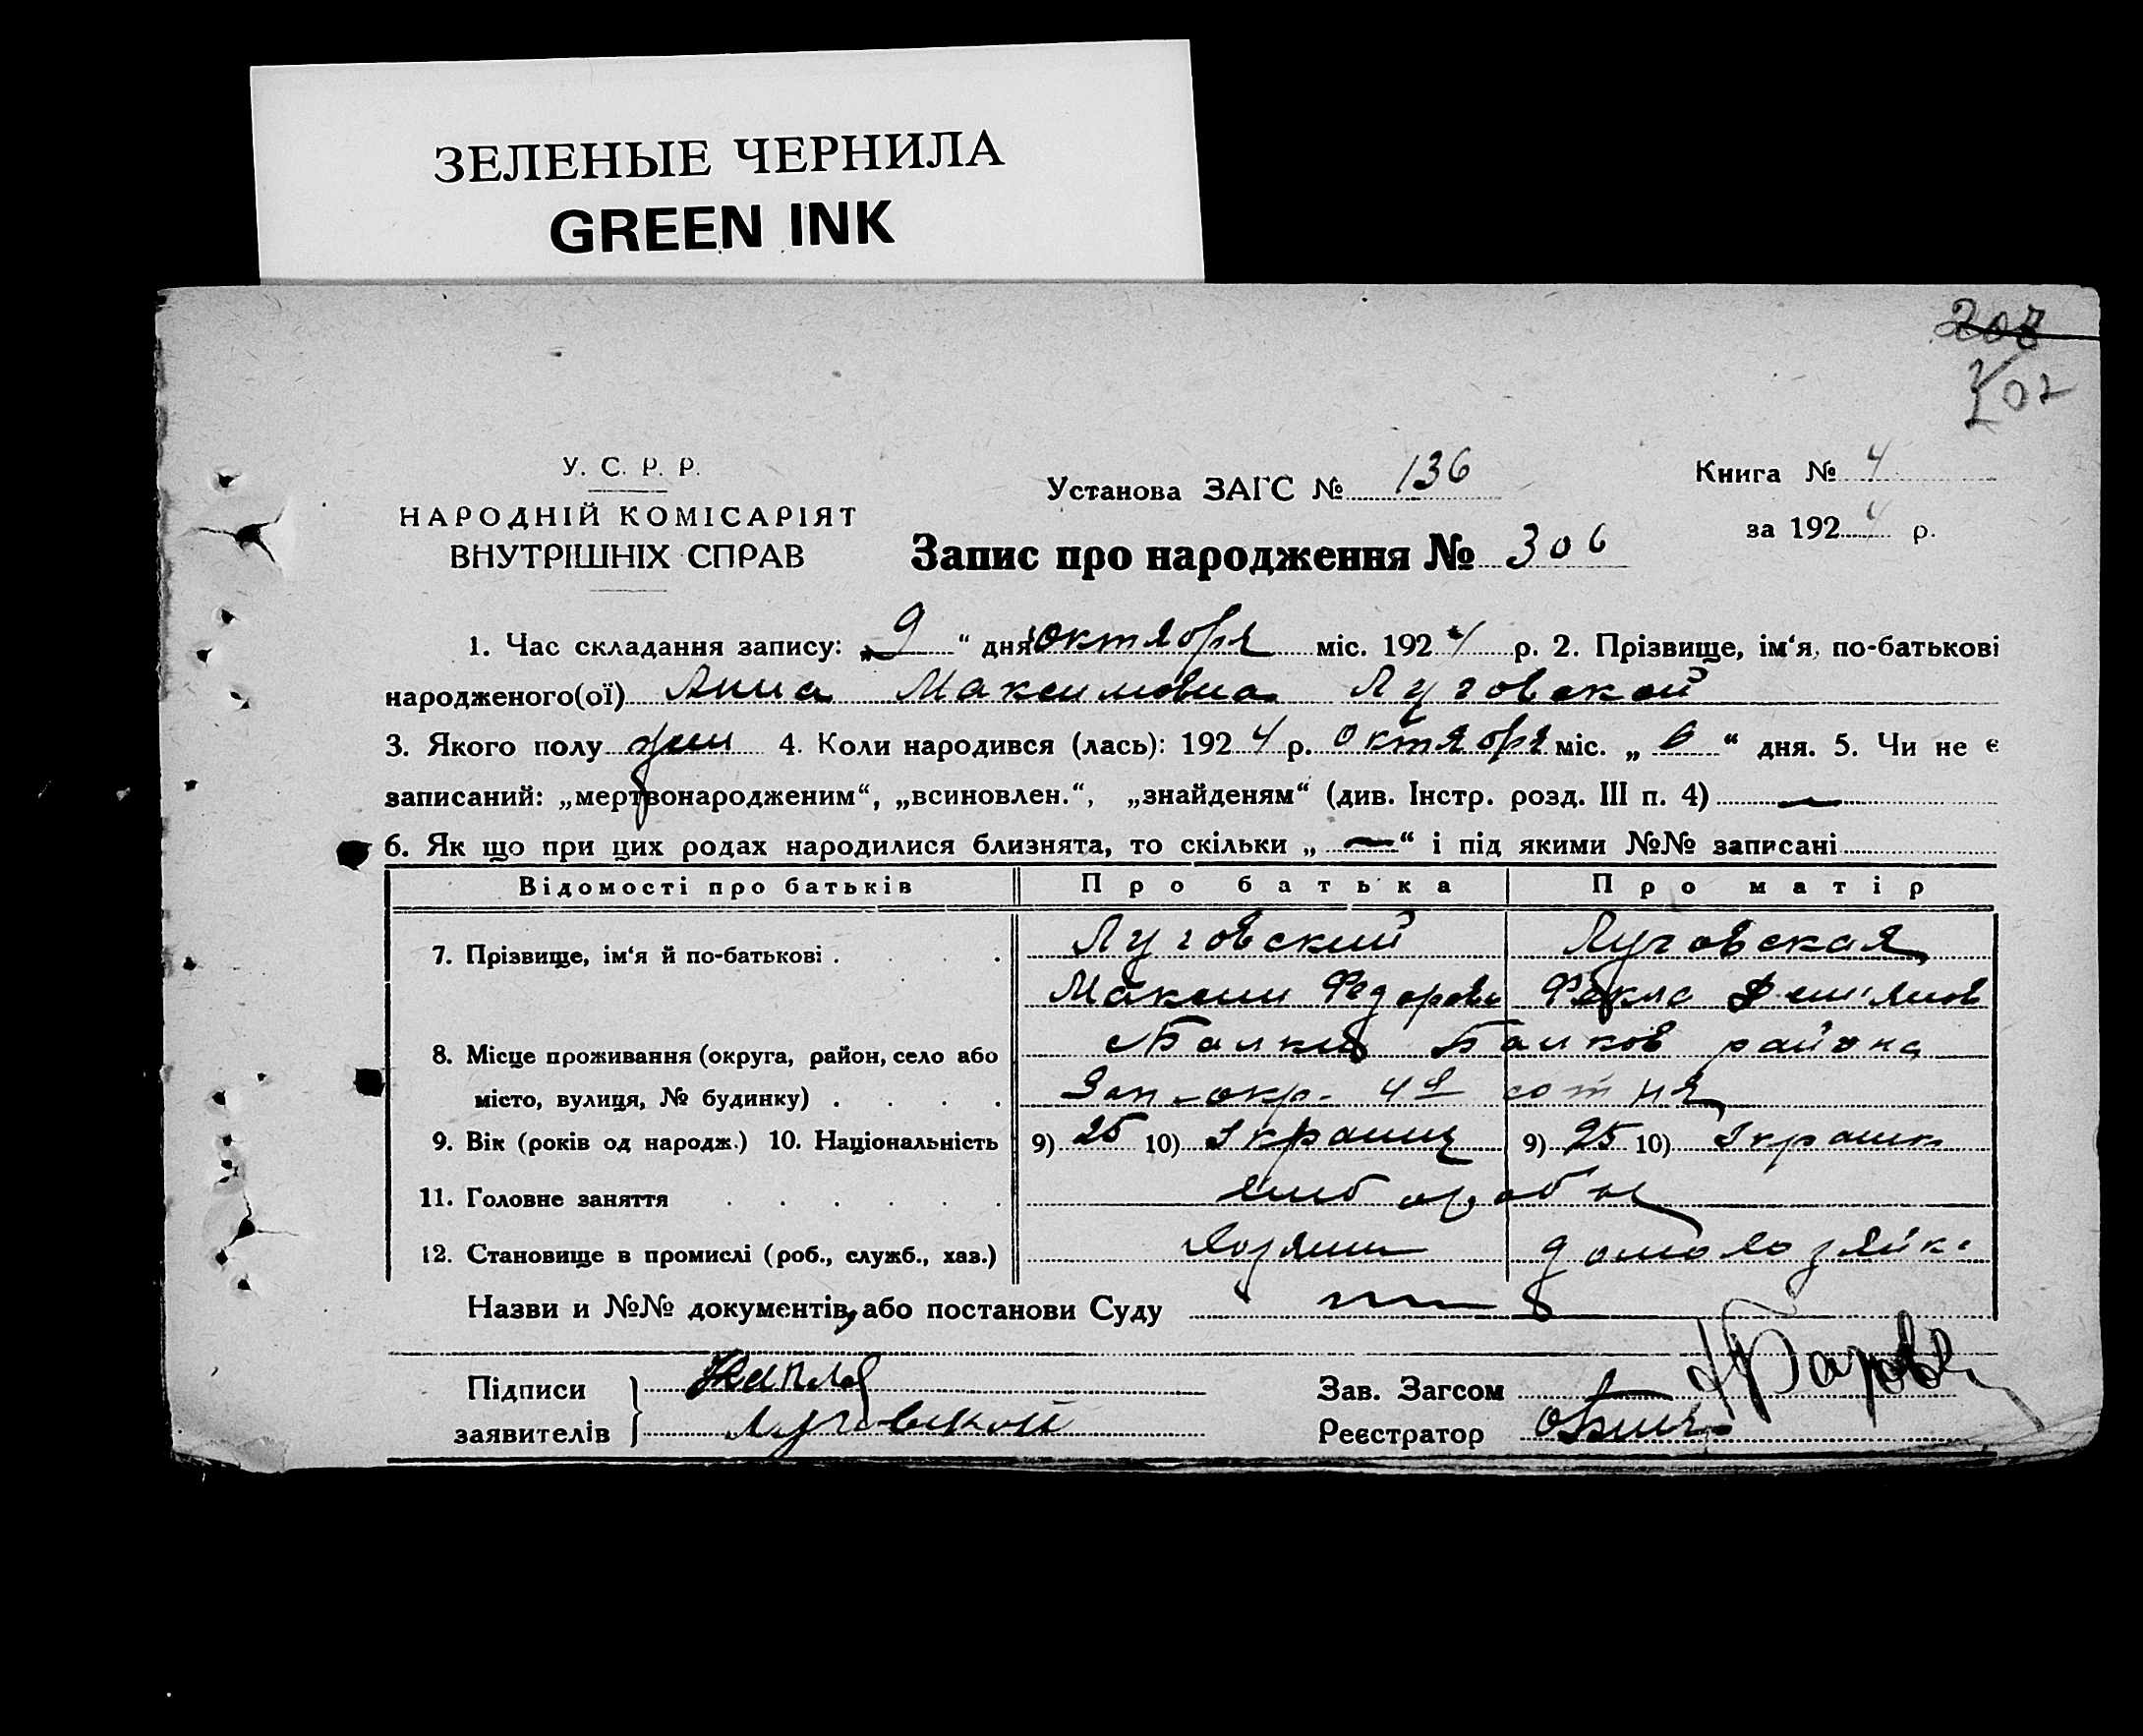 ЗЕЛЕНЫЕ ЧЕРНИЛА
GREEN INK
208
У. С. Р. Р.
НАРОДНІЙ КОМІСАРІЯТ
ВНУТРІШНІХ СПРАВ
Установа ЗАГС № 136
Книга № 4
за 1924 р.
Запис про народження № 306
1. Час складання запису: „9“ дня октября міс. 1924 р. 2. Прізвище, ім‘я, по-батькові
народженого(ої) Анна Максимовна Луговской
3. Якого полу жен 4. Коли народився (лась): 1924 р. октября міс. „6“ дня. 5. Чи не є
записаний: „мертвонародженим“, „всиновлен.“, „знайденям“ (див. Інстр. розд. III п. 4) —
6. Як що при цих родах народилися близнята, то скільки „—“ і під якими №№ записані
Відомості про батьків Про батька Про матір
7. Прізвище, ім‘я й по-батькові . Луговский Луговская
Максим Федоров Фекла Демьянов
8. Місце проживання (округа, район, село або Балки Балков района
місто, вулиця, № будинку) . Зап-окр. 4я сотня
9. Вік (років од народж.) 10. Національність 9) 25 10) Украинц 9) 25 10) Украинк
11. Головне заняття хлебороб
12. Становище в промислі (роб., служб., хаз.) хозяин домохозяйк
Назви и №№ документів, або постанови Суду
Підписи
заявителів Луговской
Зав. Загсом
Реєстратор